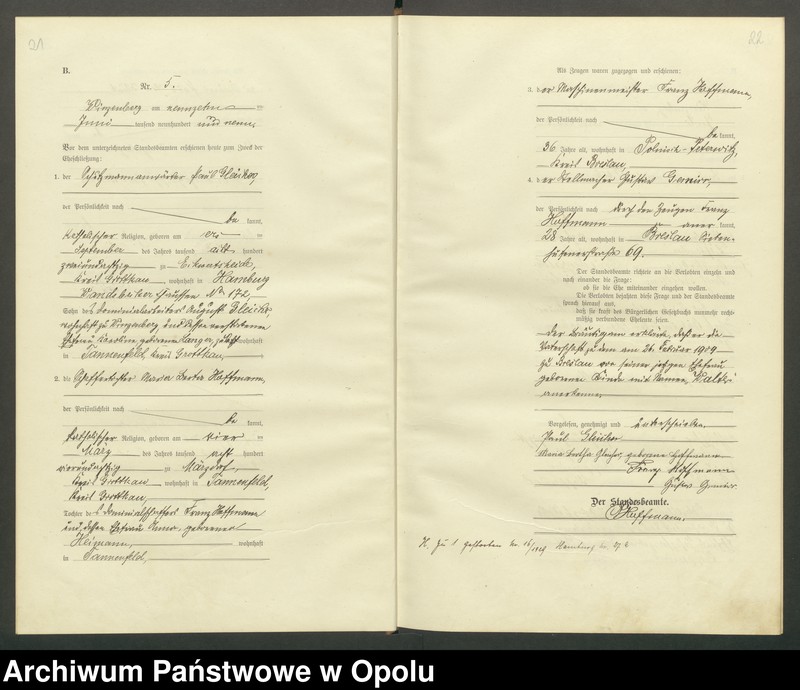 21
B.
Nr. 5.
am neunzehn ten
Juni tausend neunhundert und neun.
Vor dem unterzeichneten Standesbeamten erschienen heute zum Zweck der
Eheschließung:
1. der Paul
der Persönlichkeit nach
be kannt,
katholischer Religion, geboren am
September des Jahres tausend acht hundert
zweiundachtzig zu
Kreis Grottkau, wohnhaft in Hamburg
No 172,
Sohn des August
zu und dessen verstorbenen
Ehefrau geborenen Langer, zuletzt wohnhaft
in Tannenfeld, Kreis Grottkau,
2. die Maria Berta Hoffmann,
der Persönlichkeit nach
be kannt,
katholischer Religion, geboren am vier ten
März des Jahres tausend acht hundert
vierundachtzig zu Märzdorf,
Kreis Grottkau, wohnhaft in Tannenfeld,
Kreis Grottkau,
Tochter des Franz Hoffmann
und dessen Ehefrau geborenen
wohnhaft
in Tannenfeld,
22
Als Zeugen waren zugezogen und erschienen:
3. der Maschinenmeister Franz Hoffmann,
der Persönlichkeit nach
be kannt,
36 Jahre alt, wohnhaft in
Kreis Breslau,
4. der Stellmacher Gustav
der Persönlichkeit nach durch den Zeugen Franz
Hoffmann aner kannt,
28 Jahre alt, wohnhaft in Breslau
69.
Der Standesbeamte richtete an die Verlobten einzeln und
nach einander die Frage:
ob sie die Ehe miteinander eingehen wollen.
Die Verlobten bejahten diese Frage und der Standesbeamte
sprach hierauf aus,
daß sie kraft des Bürgerlichen Gesetzbuchs nunmehr recht-
mäßig verbundene Eheleute seien.
Der Bräutigam erklärte, daß er die
Vaterschaft zu dem am 26. Februar 1909
zu Breslau von seiner jetzigen Ehefrau
geborenen Kinde mit Namen
anerkenne.
Vorgelesen, genehmigt und unterschrieben.
Paul
Maria Bertha geborene Hoffmann
Franz Hoffmann
Gustav
Der Standesbeamte.
Hoffmann.
H. zu 1 gestorben Nr. Hamburg
Archiwum Państwowe w Opolu